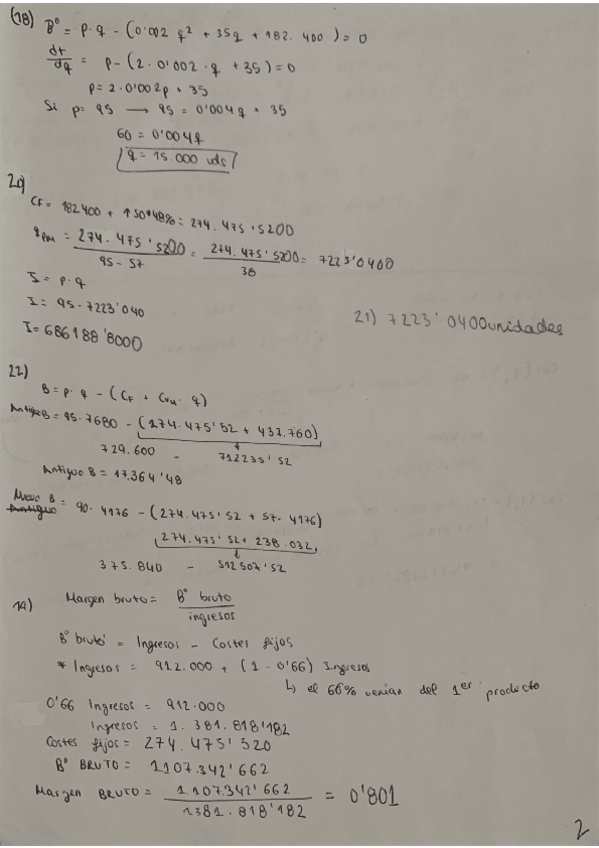 (18) B° = p·q - (0'002 q² + 35q + 182.400) = 0
dt/dq = p - (2·0'002·q + 35) = 0
p = 2·0'002p + 35
Si p = 95 → 95 = 0'004q + 35
60 = 0'004q
q = 15.000 uds
20)
CF = 182400 + 150*48% = 274.475'5200
qPM = 274.475'5200 / 95 - 57 = 274.475'5200 / 38 = 7223'0400
I = p·q
I = 95·7223'040
I = 686188'8000
21) 7223'0400 unidades
22)
B = p·q - (CF + Cvu·q)
Antiguo B = 95·7680 - (274.475'52 + 437.760)
729.600 - 712235'52
Antiguo B = 17.364'48
Nuevo B = 90·4176 - (274.475'52 + 57·4176)
Antiguo
274.475'52 + 238.032
375.840 - 512507'52
19) Margen bruto = B° bruto / ingresos
B° bruto = Ingresos - Costes fijos
* Ingresos = 912.000 + (1 - 0'66) Ingresos
↳ el 66% venian del 1er producto
0'66 Ingresos = 912.000
Ingresos = 1.381.818'182
Costes fijos = 274.475'520
B° BRUTO = 1107.342'662
Margen BRUTO = 1.107.342'662 / 1381.818'182 = 0'801
2